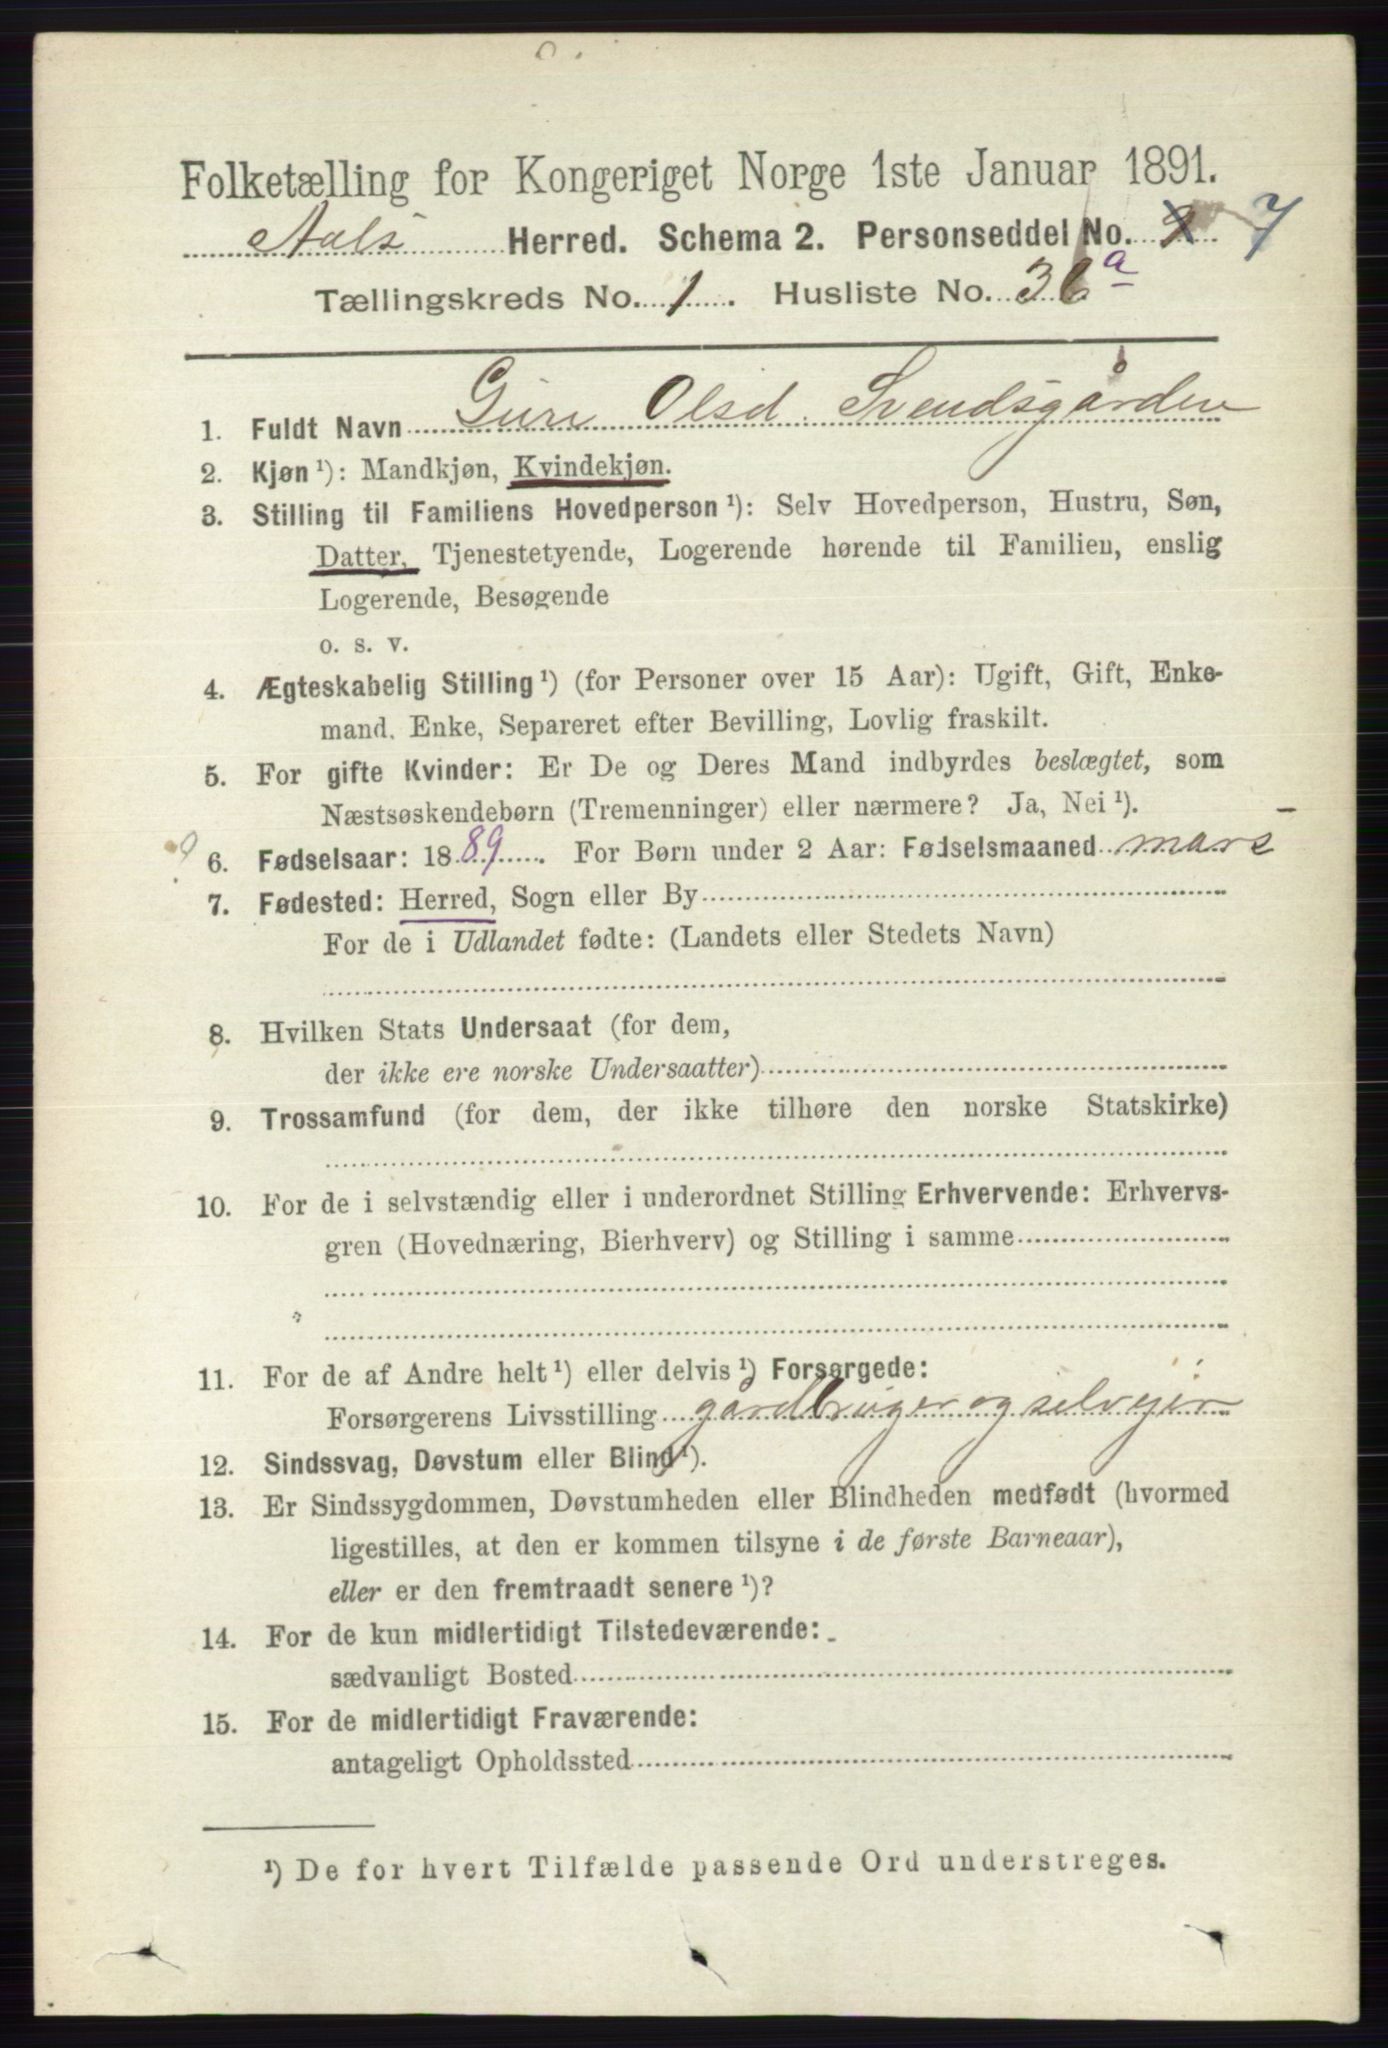 Folketælling for Kongeriget Norge 1ste Januar 1891.
Aals Herred. Schema 2. Personseddel No. 7
Tællingskreds No. 1. Husliste No. 36 a
1. Fuldt Navn Guri Olsd. Svendsgården
2. Kjøn ¹): Mandkjøn, Kvindekjøn.
3. Stilling til Familiens Hovedperson ¹): Selv Hovedperson, Hustru, Søn,
Datter, Tjenestetyende, Logerende hørende til Familien, enslig
Logerende, Besøgende
o. s. v.
4. Ægteskabelig Stilling ¹) (for Personer over 15 Aar): Ugift, Gift, Enke-
mand, Enke, Separeret efter Bevilling, Lovlig fraskilt.
5. For gifte Kvinder: Er De og Deres Mand indbyrdes beslægtet, som
Næstsøskendebørn (Tremenninger) eller nærmere? Ja, Nei ¹).
6. Fødselsaar: 1889. For Børn under 2 Aar: Fødselsmaaned mars
7. Fødested: Herred, Sogn eller By
For de i Udlandet fødte: (Landets eller Stedets Navn)
8. Hvilken Stats Undersaat (for dem,
der ikke ere norske Undersaatter)
9. Trossamfund (for dem, der ikke tilhøre den norske Statskirke)
10. For de i selvstændig eller i underordnet Stilling Erhvervende: Erhvervs-
gren (Hovednæring, Bierhverv) og Stilling i samme
11. For de af Andre helt ¹) eller delvis ¹) Forsørgede:
Forsørgerens Livsstilling gårdbruger og selveier
12. Sindssvag, Døvstum eller Blind ¹).
13. Er Sindssygdommen, Døvstumheden eller Blindheden medfødt (hvormed
ligestilles, at den er kommen tilsyne i de første Barneaar),
eller er den fremtraadt senere ¹)?
14. For de kun midlertidigt Tilstedeværende:
sædvanligt Bosted
15. For de midlertidigt Fraværende:
antageligt Opholdssted
¹) De for hvert Tilfælde passende Ord understreges.